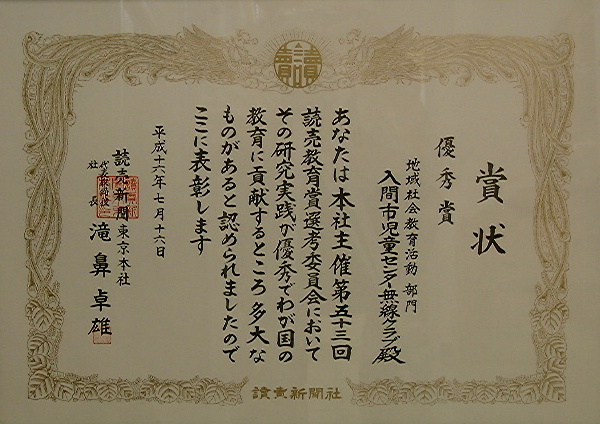 賞状
優秀賞
地域社会教育活動 部門
入間市児童センター無線クラブ殿
あなたは本社主催第五十三回
読売教育賞選考委員会において
その研究実践が優秀でわが国の
教育に貢献するところ多大な
ものがあると認められましたので
ここに表彰します
平成十六年七月十六日
読売新聞東京本社
代表取締役社長 滝鼻卓雄
讀賣新聞社